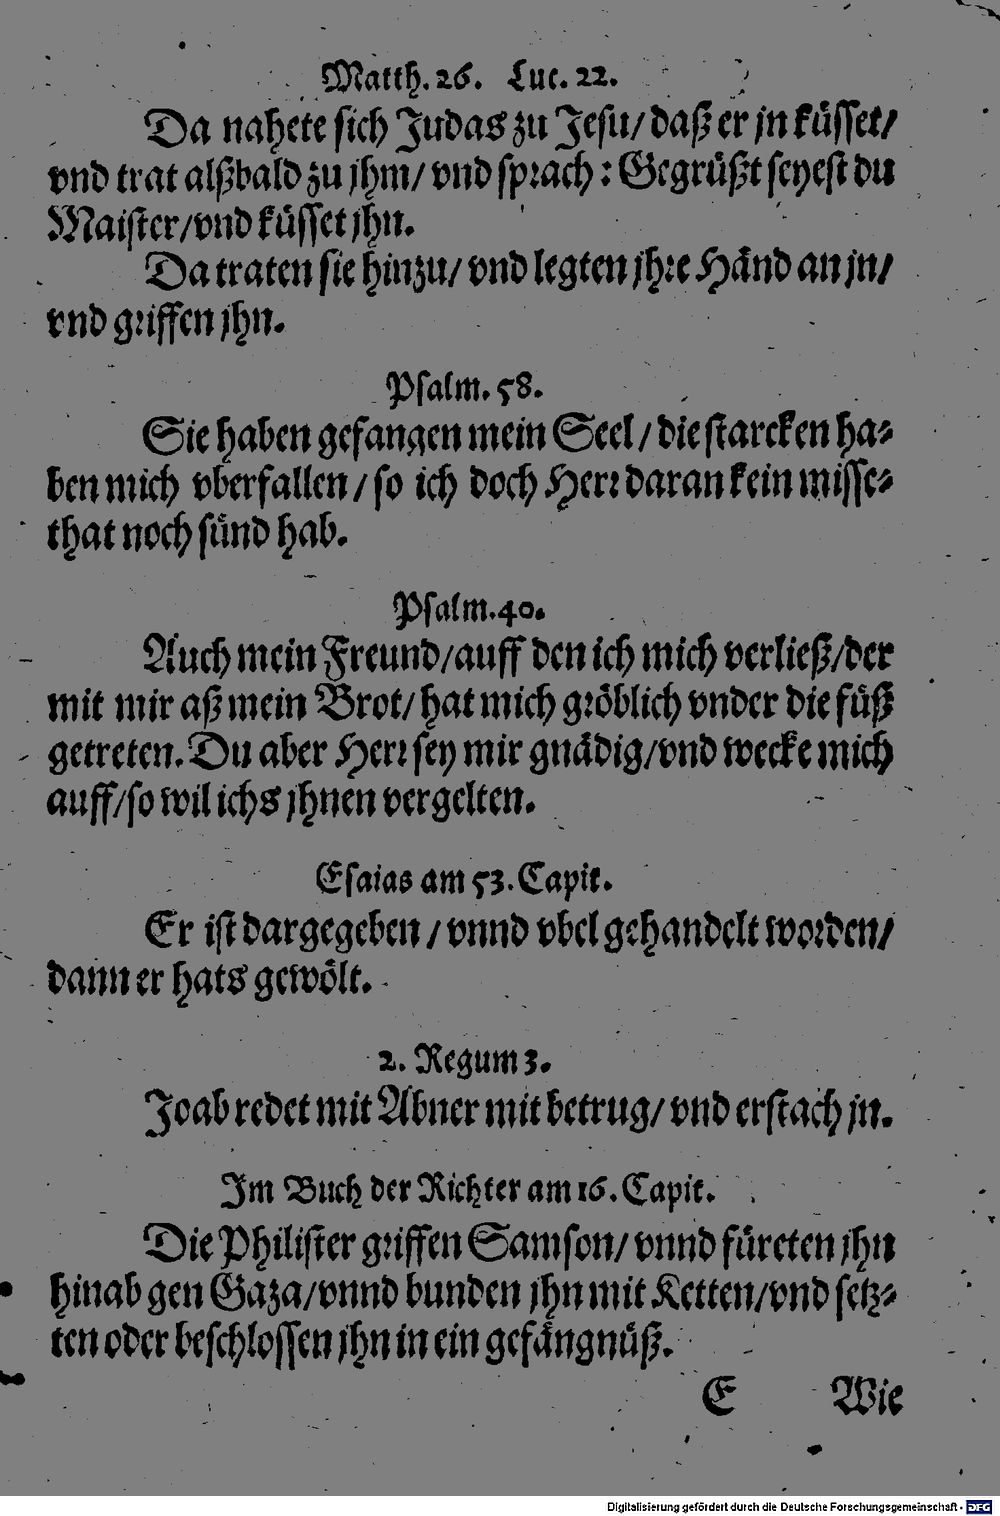 Matth. 26. Luc. 22.
Da nahete sich Judas zu Jesu/ daß er jn küsset/
vnd trat alßbald zu jhm/ vnd sprach: Gegrüßt seyest du
Maister/vnd küsset jhn.
Da traten sie hinzu/ vnd legten jhre Händ an jn/
vnd griffen jhn.
Psalm. 58.
Sie haben gefangen mein Seel/ die starcken ha-
ben mich vberfallen/ so ich doch Herr daran kein misse-
that noch sünd hab.
Psalm. 40.
Auch mein Freund/auff den ich mich verließ/der
mit mir aß mein Brot/ hat mich gröblich vnder die füß
getreten. Du aber Herr sey mir gnädig/vnd wecke mich
auff/so wil ichs jhnen vergelten.
Esaias am 53. Capit.
Er ist dargegeben/ vnnd vbel gehandelt worden/
dann er hats gewölt.
2. Regum 3.
Joab redet mit Abner mit betrug/ vnd erstach jn.
Im Buch der Richter am 16. Capit.
Die Philister griffen Samson/ vnnd füreten jhn
hinab gen Gaza/vnnd bunden jhn mit Ketten/vnd setz-
ten oder beschlossen jhn in ein gefängnüß.
E Wie
Digitalisierung gefördert durch die Deutsche Forschungsgemeinschaft - DFG